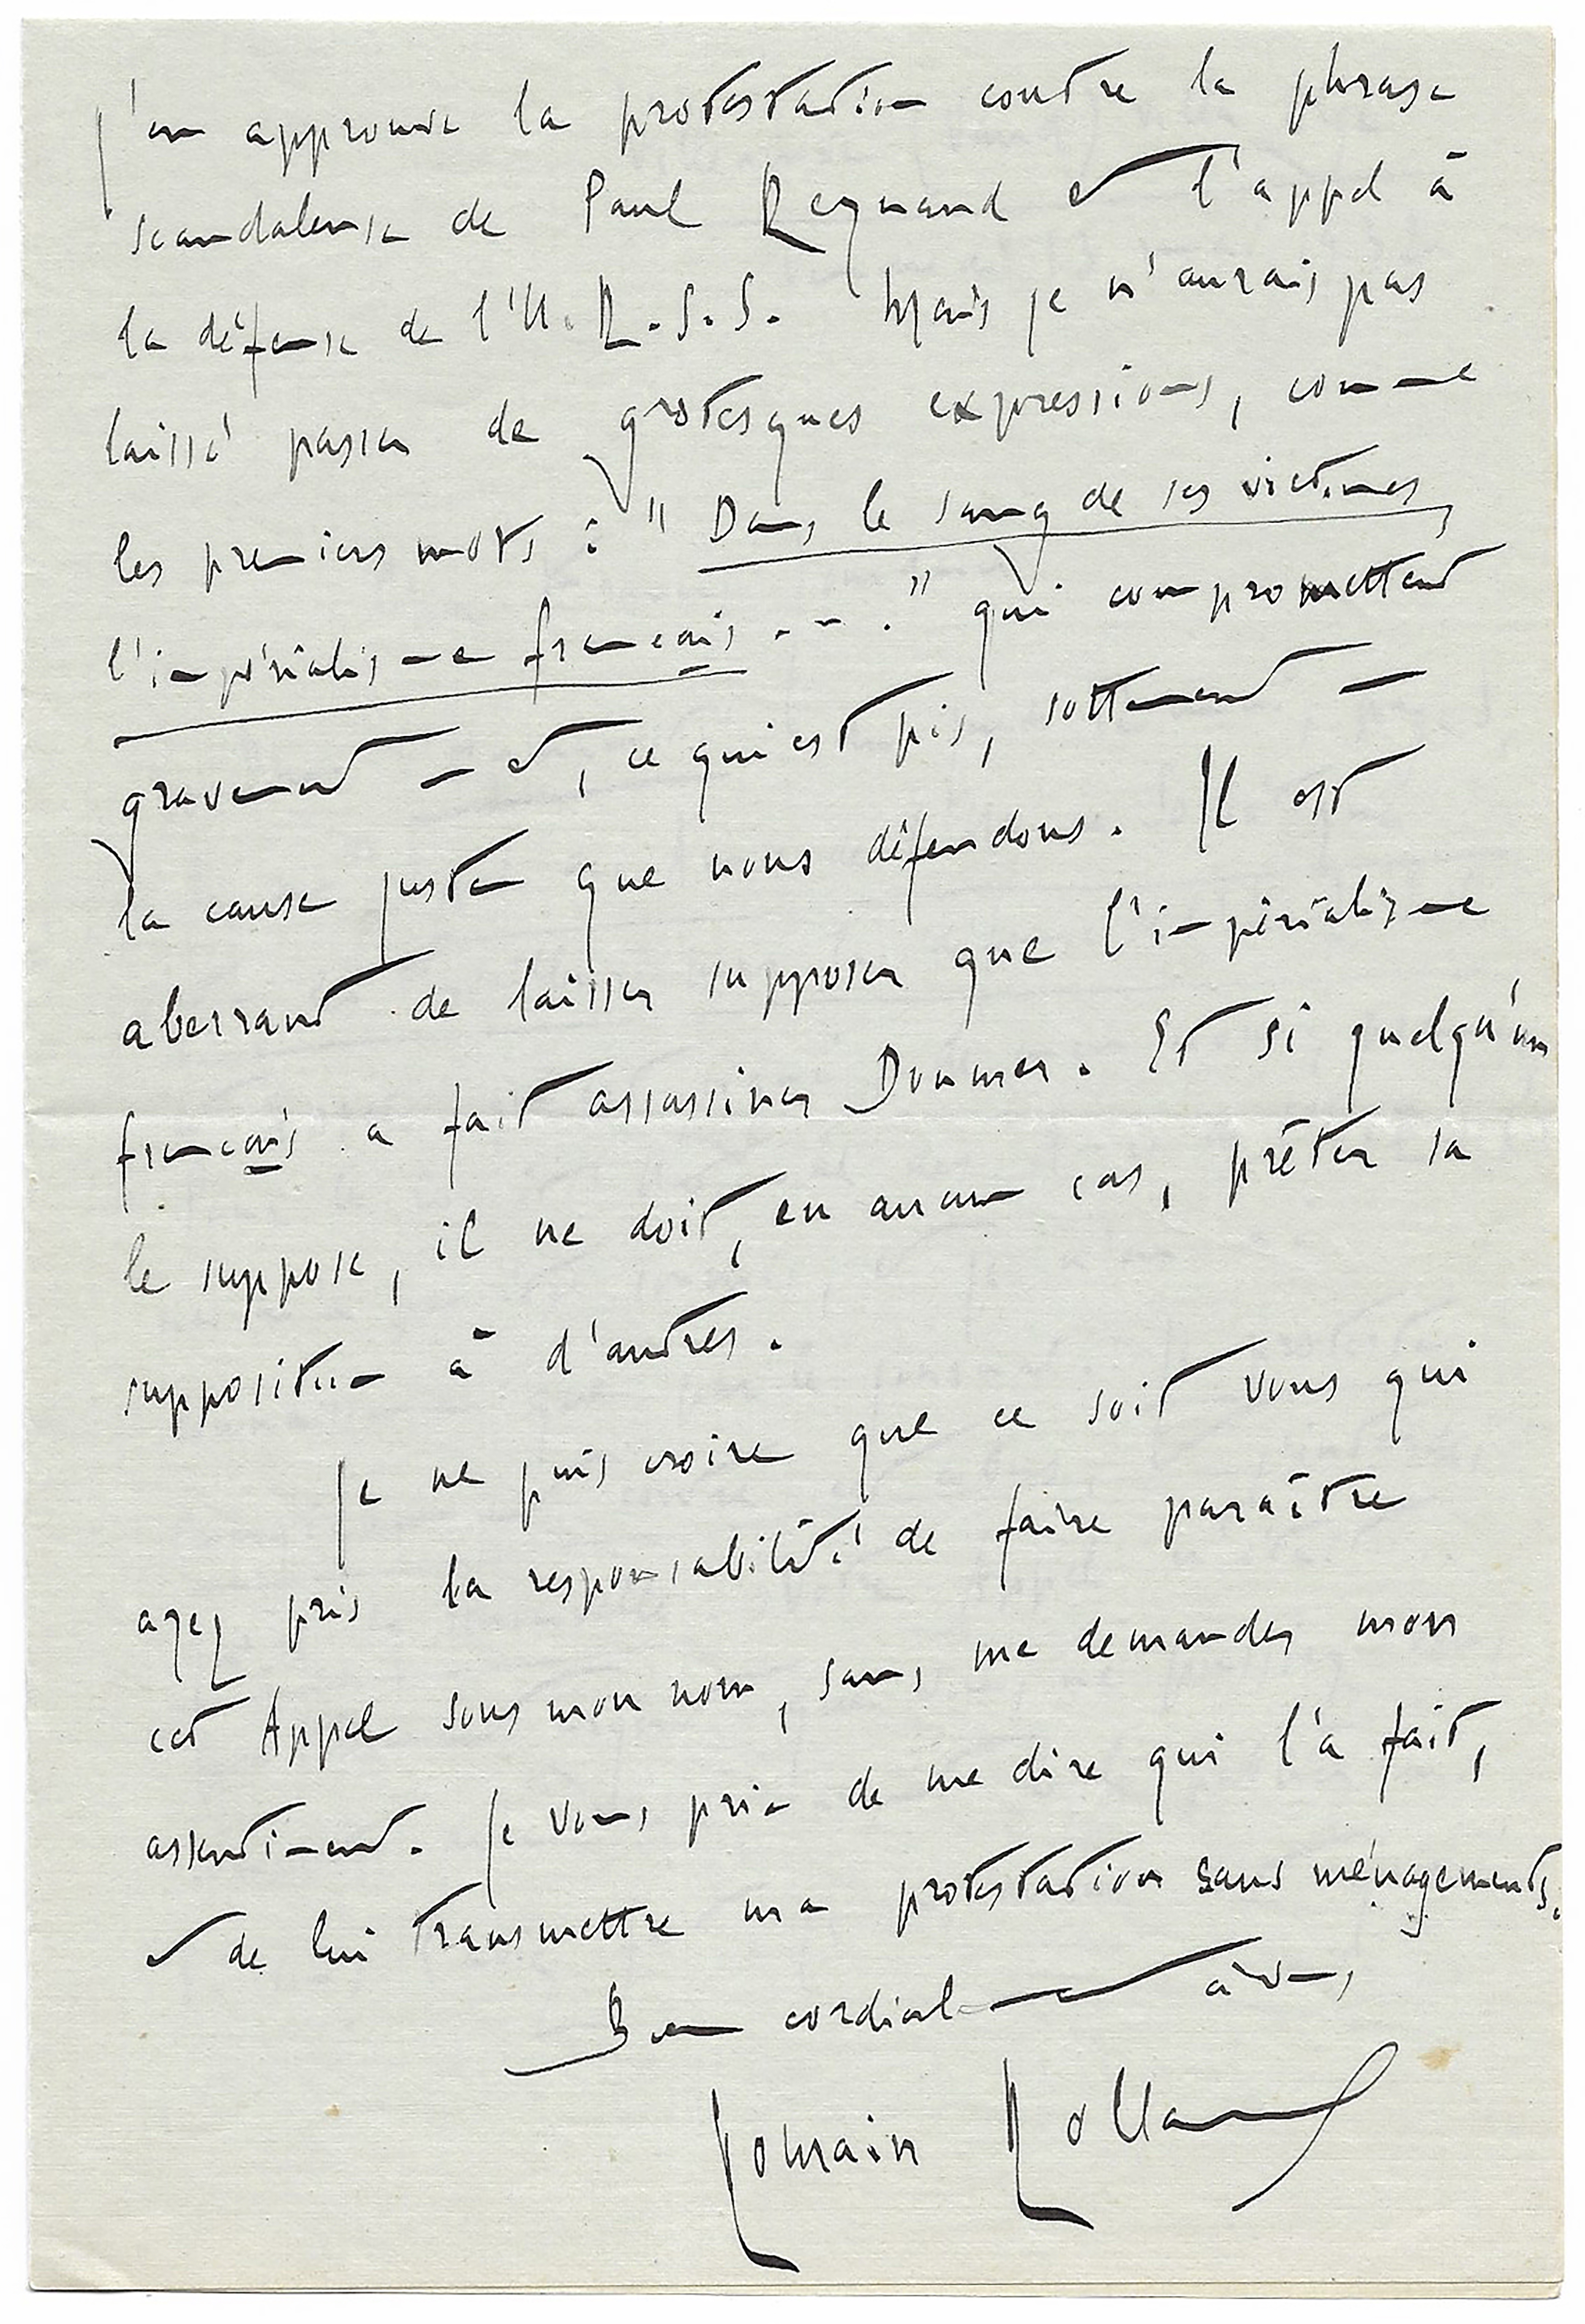 J'en approuve la protestation contre la phrase
scandaleuse de Paul Reynaud et l'appel à
la défense de l'U.R.S.S. Mais je n'aurais pas
laissé passer de grotesques expressions, comme
les premiers mots : " Dans le sang de ses victimes,
l'impérialisme français . . . " qui compromettent
gravement — et, ce qui est pis, sottement —
la cause juste que nous défendons. Il est
aberrant de laisser supposer que l'impérialisme
français a fait assassiner Doumer. Et si quelqu'un
le suppose, il ne doit, en aucun cas, prêter sa
supposition à d'autres.
Je ne puis croire que ce soit vous qui
ayez pris la responsabilité de faire paraître
cet Appel sous mon nom, sans me demander mon
assentiment. Je vous prie de me dire qui l'a fait,
et de lui transmettre ma protestation sans ménagements.
Bien cordialement à vous
Romain Rolland